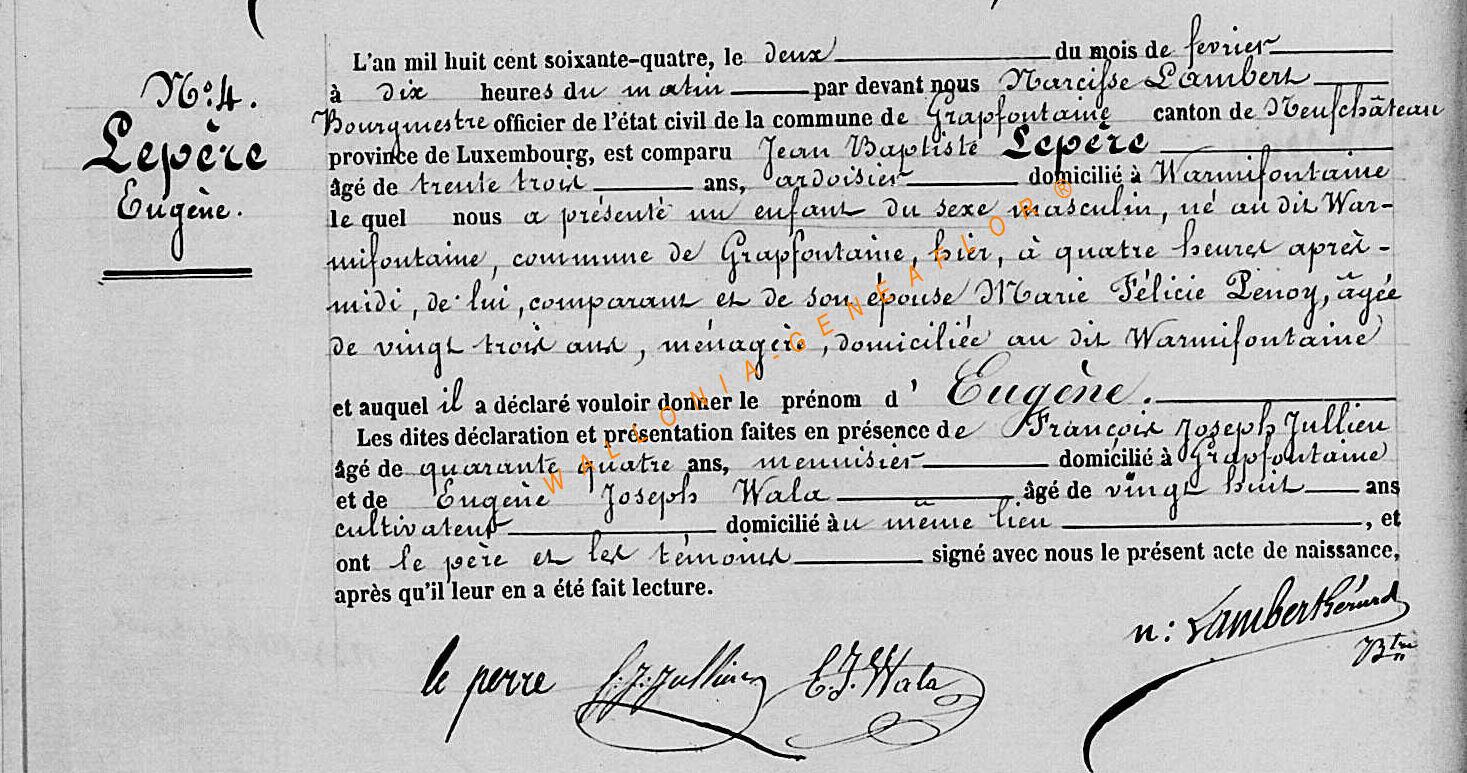 L'an mil huit cent soixante-quatre, le deux du mois de fevrier
N.º 4.
à dix heures du matin par devant nous Narcisse Lambert
Bourgmestre officier de l'état civil de la commune de Grapfontaine canton de Neufchâteau
Lepère
province de Luxembourg, est comparu Jean Baptiste Lepère
âgé de trente trois ans, ardoisier domicilié à Warmifontaine
Eugène.
le quel nous a présenté un enfant du sexe masculin, né au dit War-
mifontaine, commune de Grapfontaine, hier, à quatre heures après-
midi, de lui, comparant et de son épouse Marie Félicie Penoy, âgée
de vingt trois ans, ménagère, domiciliée au dit Warmifontaine
et auquel il a déclaré vouloir donner le prénom d' Eugène.
Les dites déclaration et présentation faites en présence de François Joseph Jullien
âgé de quarante quatre ans, menuisier domicilié à Grapfontaine
et de Eugène Joseph Wala âgé de vingt huit ans
cultivateur domicilié àu même lieu, et
ont le père et les témoins signé avec nous le présent acte de naissance,
après qu'il leur en a été fait lecture.
n: Lambert Gérard
Btre
le perre f. J. Jullien E. J. Wala
WALLONIA-GENEAFLOR®